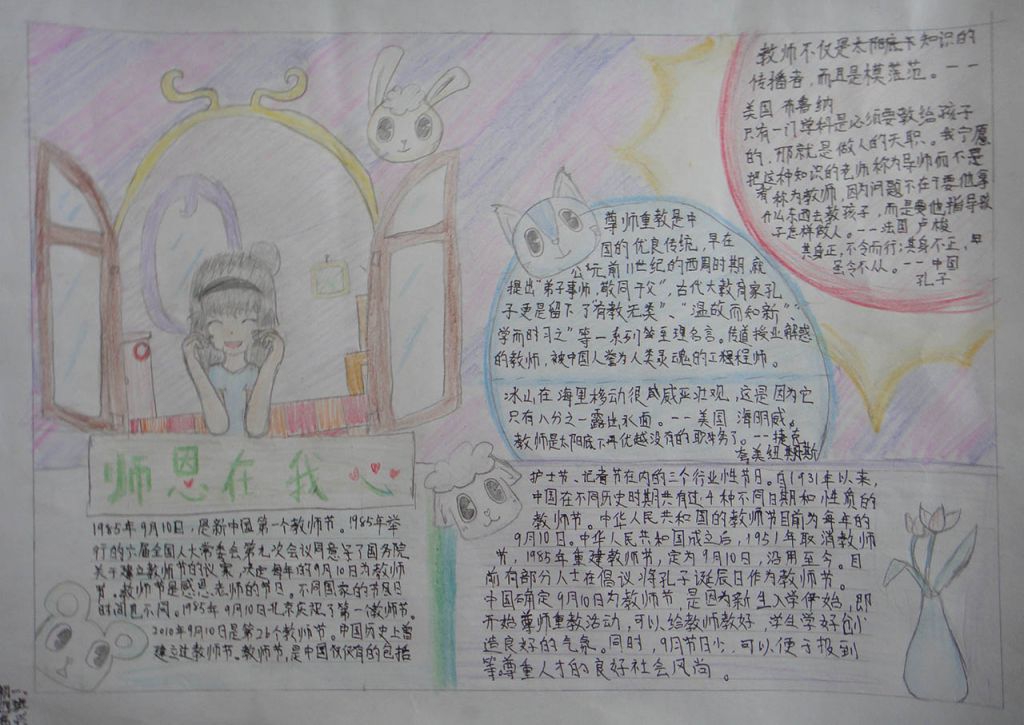 教师不仅是太阳底下知识的
传播者,而且是模范范。--
美国 布鲁纳
只有一门学科是必须要教给孩子
的,那就是做人的天职。我宁愿
把这种知识的老师称为导师而不是
称为教师,因为问题不在于要他拿
什么东西去教孩子,而是要他指导孩
子怎样做人。--法国 卢梭
其身正,不令而行;其身不正,
虽令不从。--中国
孔子
尊师重教是中
国的优良传统,早在
公元前11世纪的西周时期,就
提出“弟子事师,敬同于父”,古代大教育家孔
子更是留下了“有教无类”、“温故而知新”、“
学而时习之”等一系列至理名言。传道授业解惑
的教师,被中国人誉为人类灵魂的工程师。
冰山在海里移动很威严壮观,这是因为它
只有八分之一露出水面。--美国 海明威。
教师是太阳底下再优越没有的职务了。--捷克
夸美纽斯
师恩在我心
1985年9月10日,是新中国第一个教师节。1985年举
行的六届全国人大常委会第九次会议同意了国务院
关于建立教师节的议案,决定每年的9月10日为教师
节。教师节是感恩老师的节日。不同国家的节度日
时间也不同。1985年9月10日北京庆祝了第一个教师节。
2010年9月10日是第26个教师节。中国历史上曾
建立过教师节。教师节,是中国仅仅有的包括
护士节、记者节在内的三个行业性节日。自1931年以来,
中国在不同历史时期共有过4种不同日期和性质的
教师节。中华人民共和国的教师节目前为每年的
9月10日。中华人民共和国成立之后,1951年取消教师
节,1985年重建教师节,定为9月10日,沿用至今。目
前有部分人士在倡议将孔子诞辰日作为教师节。
中国确定9月10日为教师节,是因为新生入学伊始,即
开始尊师重教活动,可以给教师教好,学生学好创
造良好的气氛。同时,9月节日少,可以便于报到
等尊重人才的良好社会风尚。